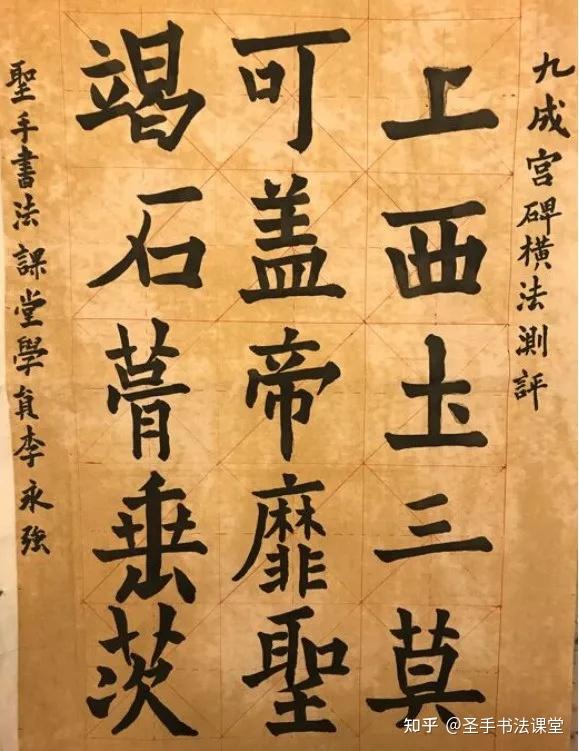 九成宮碑橫法測評
上西圡三莫
可盖帝靡聖
竭石垂茨
聖手書法課堂學員李永強
知乎 @圣手书法课堂